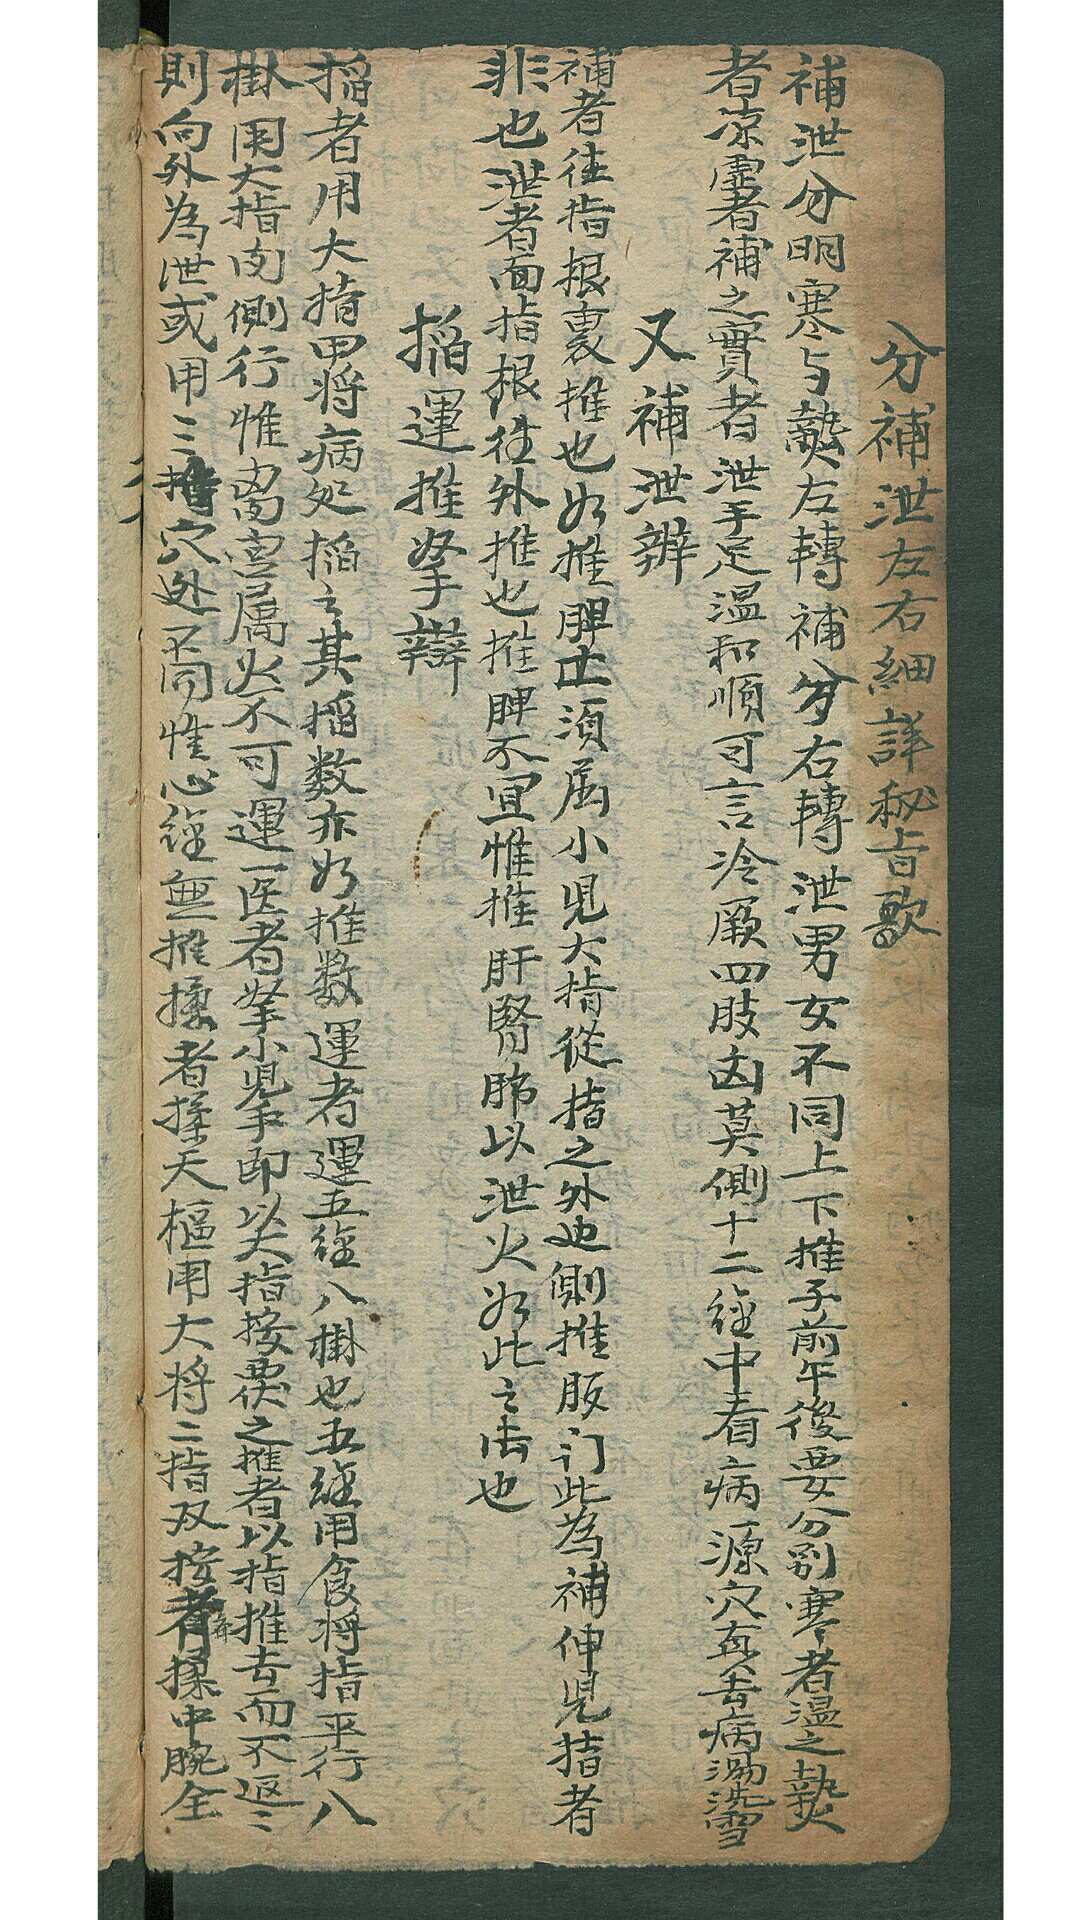 分補泄左右細詳秘旨歌
補泄分明寒与熱左轉補兮右轉泄男女不同上下推子前午後要分别寒者温之熱
者凉虛者補之實者泄手足温和順可言冷厥四肢凶莫測十二經中看病源穴真去病湯洗雪
又補泄辨
補者徃指根裏推也如推脾土須属小児大指從指之外边側推版门此為補伸児指者
非也泄者面指根徃外推也推脾不宜惟推肝腎肺以泄火如此之法也
掐運推拏辯
掐者用大指甲将病処掐之其掐数亦如推数運者運五經八掛也五經用食将指平行八
掛用大指肉側行惟离宫属火不可運一医者拏小児手即以大指按要之推者以指推去而不返〻
則向外為泄或用三指穴处不同惟心經無推揉者揉天樞用大将二指双按者揉中腕全